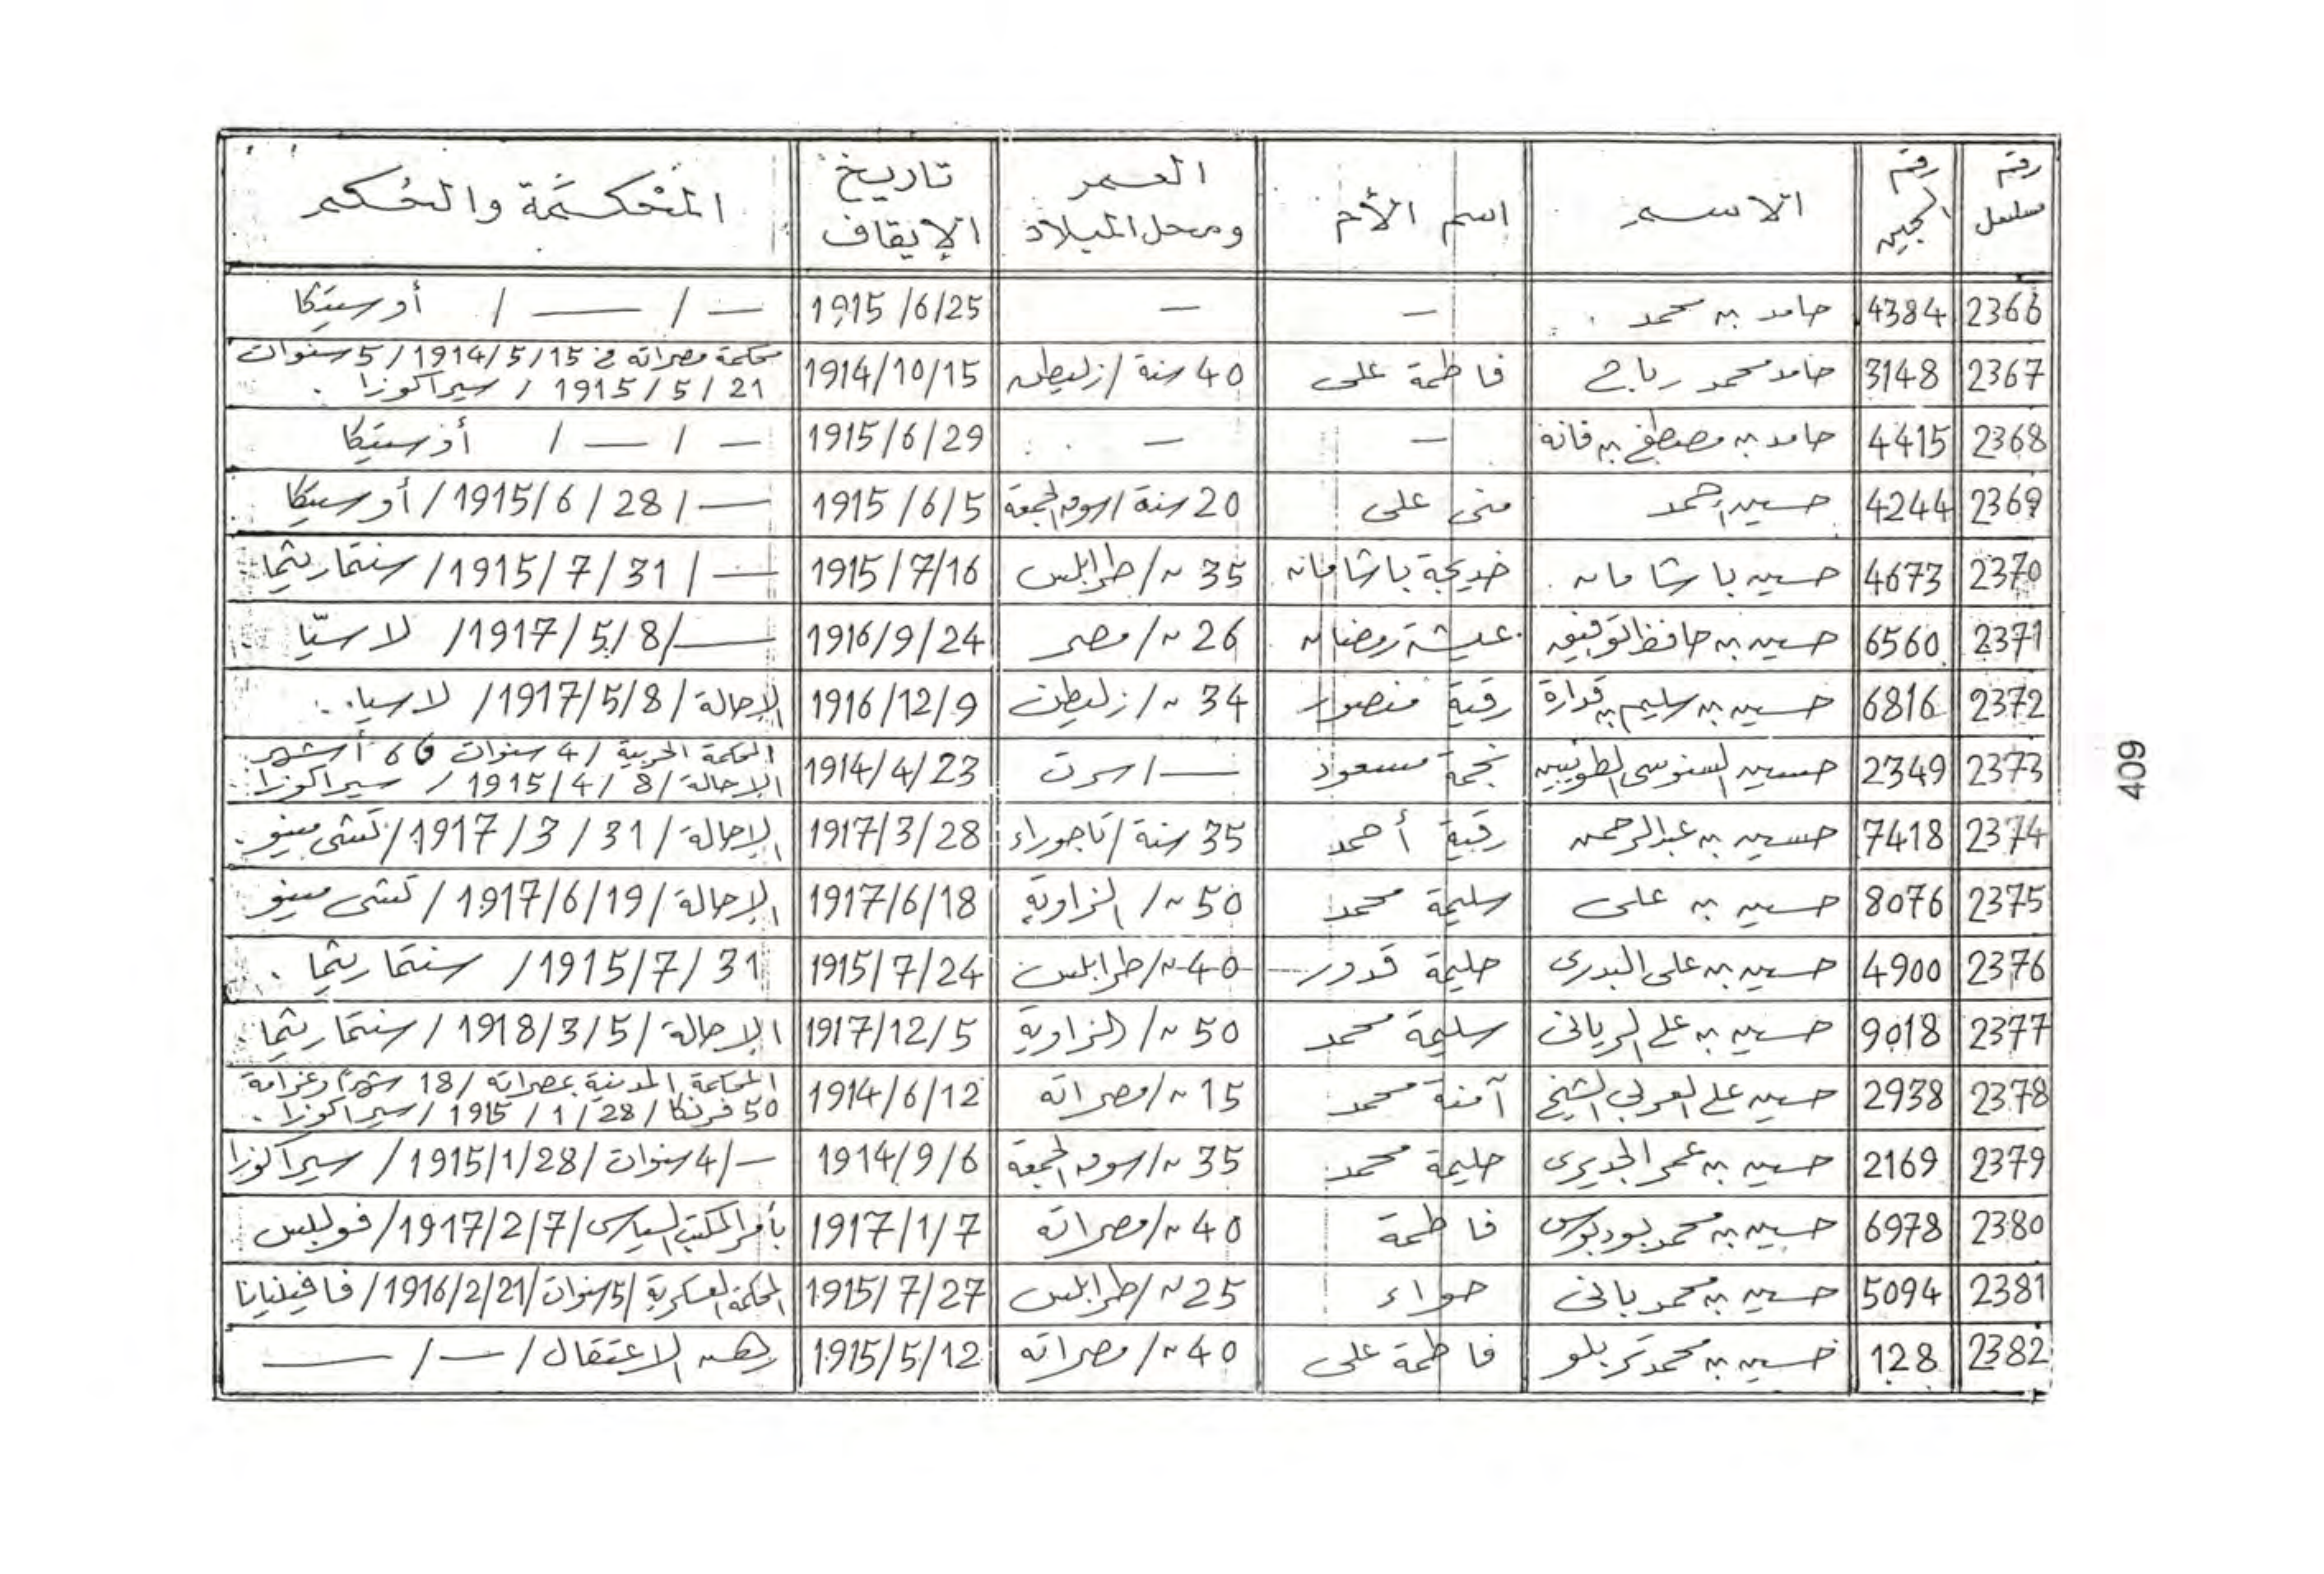 رقم مسلسل | رقم السجين | الاسم | اسم الأم | العمر ومحل الميلاد | تاريخ الإيقاف | المحكمة والحكم
2366 | 4384 | حامد بن محمد | — | — | 1915/6/25 | — / — / أوستيكا
2367 | 3148 | حامد محمد رباح | فاطمة على | 40 سنة / زليطن | 1914/10/15 | محكمة مصراته في 1914/5/15 / 5 سنوات
1915/5/21 / سيراكوزا .
2368 | 4415 | حامد بن مصطفى بن قانه | — | — | 1915/6/29 | — / — / أوستيكا
2369 | 4244 | حسين احمد | منى على | 20 سنة / سوق الجمعة | 1915/6/5 | — / 1915/6/28 / أوستيكا
2370 | 4673 | حسين باشامان | خديجة باشامان | 35 ~ / طرابلس | 1915/7/16 | — / 1915/7/31 / سنتماريثما
2371 | 6560 | حسين بن حافظ التوفيق | عيشة رمضان | 26 ~ / مصر | 1916/9/24 | — / 1917/5/8 / لاسيّا
2372 | 6816 | حسين بن سليم بن قدارة | رقية منصور | 34 ~ / زليطن | 1916/12/9 | الإحالة / 1917/5/8 / لاسيا
2373 | 2349 | حسين السنوسى الطويبين | نجمة مسعود | — / سرت | 1914/4/23 | المحكمة الحربية / 4 سنوات و 6 أشهر
الإحالة / 1915/4/8 / سيراكوزا
2374 | 7418 | حسين بن عبدالرحمن | رقية أحمد | 35 سنة / تاجوراء | 1917/3/28 | الإحالة / 1917/3/31 / تشى مينو
2375 | 8076 | حسين بن على | سليمة محمد | 50 ~ / الزاوية | 1917/6/18 | الإحالة / 1917/6/19 / تشى مينو
2376 | 4900 | حسين بن على البدرى | حليمة قدور | 40 ~ / طرابلس | 1915/7/24 | 1915/7/31 / سنتماريثما .
2377 | 9018 | حسين بن على الريانى | سليمة محمد | 50 ~ / الزاوية | 1917/12/5 | الإحالة / 1918/3/5 / سنتماريثما
2378 | 2938 | حسين على العربى الشيخ | آمنة محمد | 15 ~ / مصراته | 1914/6/12 | المحكمة المدنية بمصراته / 18 شهراً وغرامة
50 فرنكا / 1915/1/28 / سيراكوزا .
2379 | 2169 | حسين بن عمر الجديرى | حليمة محمد | 35 ~ / سوق الجمعة | 1914/9/6 | — / 4 سنوات / 1915/1/28 / سيراكوزا
2380 | 6978 | حسين بن محمد بودبوس | فاطمة | 40 ~ / مصراته | 1917/1/7 | بأمر المكتب السياسى / 1917/2/7 / فوليلس
2381 | 5094 | حسين بن محمد بانى | حواء | 25 ~ / طرابلس | 1915/7/27 | المحكمة العسكرية / 5 سنوات / 1916/2/21 / فافينيانا
2382 | 128 | حسين بن محمد تربلو | فاطمة على | 40 ~ / مصراته | 1915/5/12 | رهن الاعتقال / — / —
409